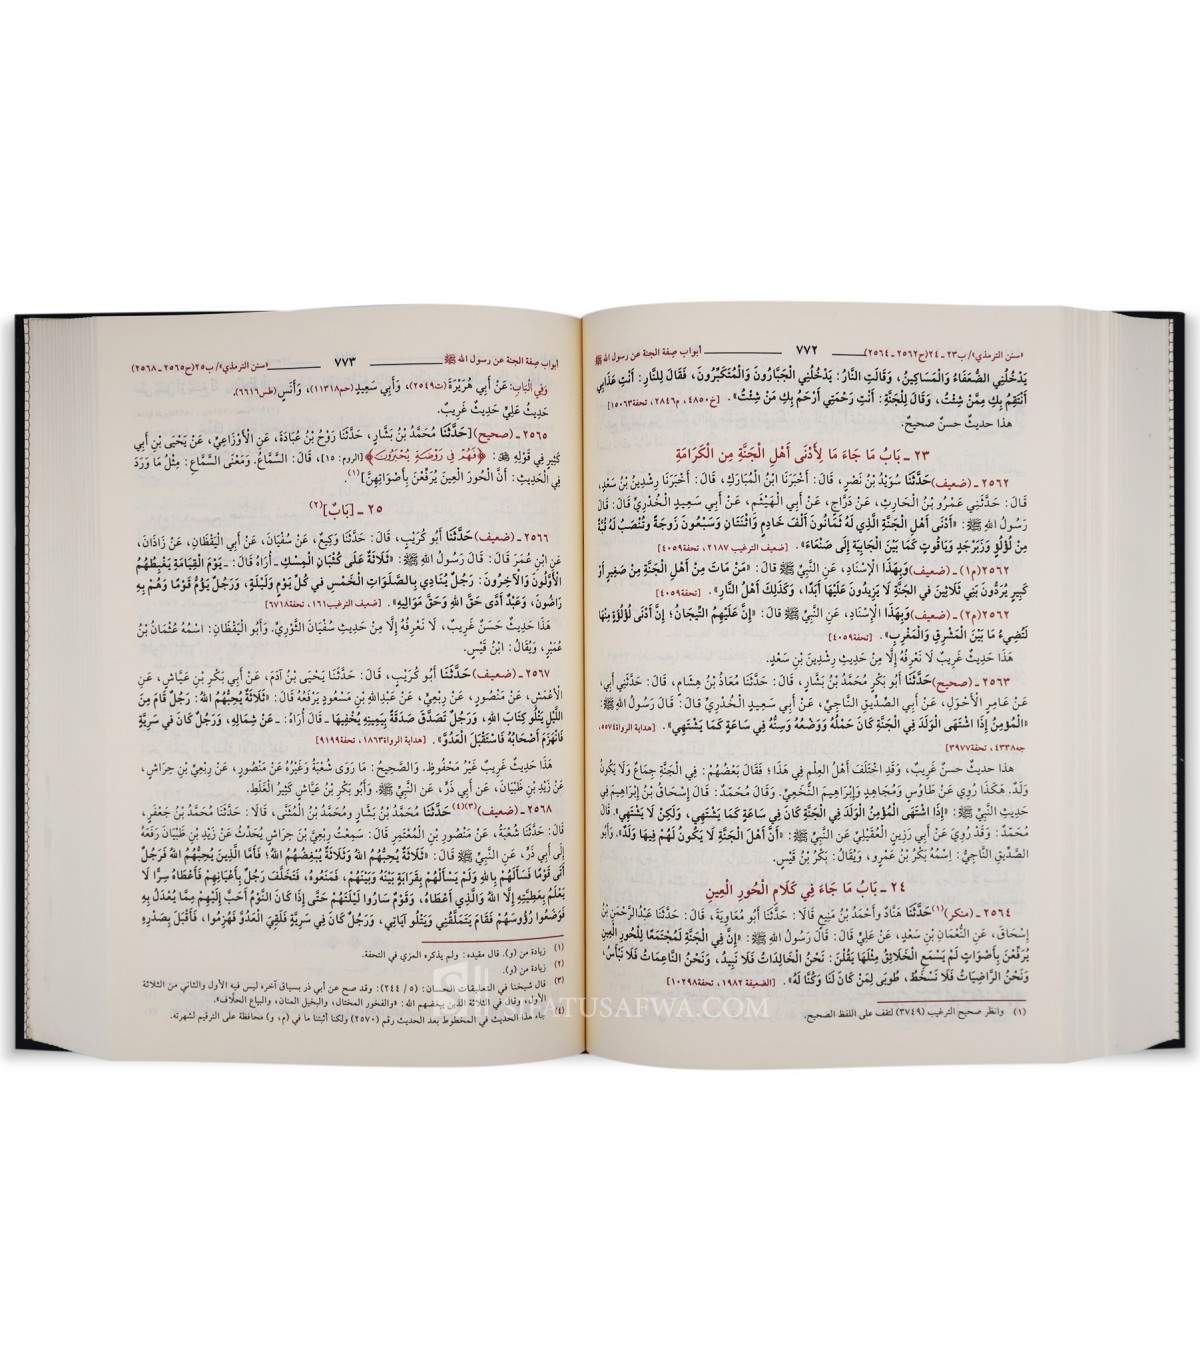 «سنن الترمذي»/ ب٢٣ - ٢٤ (ح٢٥٦٢ - ٢٥٦٤) ٧٧٢ أبواب صفة الجنة عن رسول الله ﷺ
يَدْخُلُنِي الضُّعَفَاءُ وَالْمَسَاكِينُ، وَقَالَتِ النَّارُ: يَدْخُلُنِي الْجَبَّارُونَ وَالْمُتَكَبِّرُونَ، فَقَالَ لِلنَّارِ: أَنْتِ عَذَابِي
أَنْتَقِمُ بِكِ مِمَّنْ شِئْتُ، وَقَالَ لِلْجَنَّةِ: أَنْتِ رَحْمَتِي أَرْحَمُ بِكِ مَنْ شِئْتُ». [خ٤٨٥٠، م٢٨٤٦، تحفة١٥٠٦٣]
هذا حديثٌ حسنٌ صحيحٌ.
٢٣ - بَابُ مَا جَاءَ مَا لِأَدْنَى أَهْلِ الْجَنَّةِ مِنَ الْكَرَامَةِ
٢٥٦٢ - (ضعيف) حَدَّثَنَا سُوَيْدُ بْنُ نَصْرٍ، قَالَ: أَخْبَرَنَا ابْنُ الْمُبَارَكِ، قَالَ: أَخْبَرَنَا رِشْدِينُ بْنُ سَعْدٍ،
قَالَ: حَدَّثَنِي عَمْرُو بْنُ الْحَارِثِ، عَنْ دَرَّاجٍ، عَنْ أَبِي الْهَيْثَمِ، عَنْ أَبِي سَعِيدٍ الْخُدْرِيِّ قَالَ: قَالَ
رَسُولُ اللهِ ﷺ: «أَدْنَى أَهْلِ الْجَنَّةِ الَّذِي لَهُ ثَمَانُونَ أَلْفَ خَادِمٍ وَاثْنَتَانِ وَسَبْعُونَ زَوْجَةً وَتُنْصَبُ لَهُ قُبَّةٌ
مِنْ لُؤْلُؤٍ وَزَبَرْجَدٍ وَيَاقُوتٍ كَمَا بَيْنَ الْجَابِيَةِ إِلَى صَنْعَاءَ». [ضعيف الترغيب ٢١٨٧، تحفة٤٠٥٩]
٢٥٦٢(م١) - (ضعيف) وَبِهَذَا الْإِسْنَادِ، عَنِ النَّبِيِّ ﷺ قَالَ: «مَنْ مَاتَ مِنْ أَهْلِ الْجَنَّةِ مِنْ صَغِيرٍ أَوْ
كَبِيرٍ يُرَدُّونَ بَنِي ثَلَاثِينَ فِي الْجَنَّةِ لَا يَزِيدُونَ عَلَيْهَا أَبَدًا، وَكَذَلِكَ أَهْلُ النَّارِ». [تحفة٤٠٥٩]
٢٥٦٢(م٢) - (ضعيف) وَبِهَذَا الْإِسْنَادِ، عَنِ النَّبِيِّ ﷺ قَالَ: «إِنَّ عَلَيْهِمُ التِّيجَانَ؛ إِنَّ أَدْنَى لُؤْلُؤَةٍ مِنْهَا
لَتُضِيءُ مَا بَيْنَ الْمَشْرِقِ وَالْمَغْرِبِ». [تحفة٤٠٥٩]
هَذَا حَدِيثٌ غَرِيبٌ لَا نَعْرِفُهُ إِلَّا مِنْ حَدِيثِ رِشْدِينَ بْنِ سَعْدٍ.
٢٥٦٣ - (صحيح) حَدَّثَنَا أَبُو بَكْرٍ مُحَمَّدُ بْنُ بَشَّارٍ، قَالَ: حَدَّثَنَا مُعَاذُ بْنُ هِشَامٍ، قَالَ: حَدَّثَنِي أَبِي،
عَنْ عَامِرٍ الْأَحْوَلِ، عَنْ أَبِي الصِّدِّيقِ النَّاجِيِّ، عَنْ أَبِي سَعِيدٍ الْخُدْرِيِّ قَالَ: قَالَ رَسُولُ اللهِ ﷺ:
«الْمُؤْمِنُ إِذَا اشْتَهَى الْوَلَدَ فِي الْجَنَّةِ كَانَ حَمْلُهُ وَوَضْعُهُ وَسِنُّهُ فِي سَاعَةٍ كَمَا يَشْتَهِي». [هداية الرواة٥٥٧٤،
جه٤٣٣٨، تحفة٣٩٧٧]
هذا حديثٌ حسنٌ غَرِيبٌ، وَقَدِ اخْتَلَفَ أَهْلُ العِلْمِ فِي هَذَا؛ فَقَالَ بَعْضُهُمْ: فِي الْجَنَّةِ جِمَاعٌ وَلَا يَكُونُ
وَلَدٌ. هَكَذَا رُوِيَ عَنْ طَاوُسٍ وَمُجَاهِدٍ وَإِبْرَاهِيمَ النَّخَعِيِّ. وَقَالَ مُحَمَّدٌ: قَالَ إِسْحَاقُ بْنُ إِبْرَاهِيمَ فِي
حَدِيثِ النَّبِيِّ ﷺ: «إِذَا اشْتَهَى الْمُؤْمِنُ الْوَلَدَ فِي الْجَنَّةِ كَانَ فِي سَاعَةٍ كَمَا يَشْتَهِي، وَلَكِنْ لَا يَشْتَهِي». قَالَ
مُحَمَّدٌ: وَقَدْ رُوِيَ عَنْ أَبِي رَزِينٍ الْعُقَيْلِيِّ عَنِ النَّبِيِّ ﷺ: «أَنَّ أَهْلَ الْجَنَّةِ لَا يَكُونُ لَهُمْ فِيهَا وَلَدٌ». وَأَبُو
الصِّدِّيقِ النَّاجِيُّ: اسْمُهُ بَكْرُ بْنُ عَمْرٍو، وَيُقَالُ: بَكْرُ بْنُ قَيْسٍ.
٢٤ - بَابُ مَا جَاءَ فِي كَلَامِ الْحُورِ الْعِينِ
٢٥٦٤ - (منكر)(١) حَدَّثَنَا هَنَّادٌ وأَحْمَدُ بْنُ مَنِيعٍ قَالَا: حَدَّثَنَا أَبُو مُعَاوِيَةَ، قَالَ: حَدَّثَنَا عَبْدُالرَّحْمَنِ بْنُ
إِسْحَاقَ، عَنِ النُّعْمَانِ بْنِ سَعْدٍ، عَنْ عَلِيٍّ قَالَ: قَالَ رَسُولُ اللهِ ﷺ: «إِنَّ فِي الْجَنَّةِ لَمُجْتَمَعًا لِلْحُورِ الْعِينِ
يُرَفِّعْنَ بِأَصْوَاتٍ لَمْ يَسْمَعِ الْخَلَائِقُ مِثْلَهَا يَقُلْنَ: نَحْنُ الْخَالِدَاتُ فَلَا نَبِيدُ، وَنَحْنُ النَّاعِمَاتُ فَلَا نَبْأَسُ،
وَنَحْنُ الرَّاضِيَاتُ فَلَا نَسْخَطُ، طُوبَى لِمَنْ كَانَ لَنَا وَكُنَّا لَهُ». [الضعيفة ١٩٨٢، تحفة١٠٢٩٨]
(١) وانظر صحيح الترغيب (٣٧٤٩) لتقف على اللفظ الصحيح.
أبواب صفة الجنة عن رسول الله ﷺ ٧٧٣ «سنن الترمذي»/ ب٢٥ (ح٢٥٦٥ - ٢٥٦٨)
وَفِي الْبَابِ: عَنْ أَبِي هُرَيْرَةَ (ت٢٥٤٩)، وَأَبِي سَعِيدٍ (حم١١٣١٨)، وَأَنَسٍ (طس٦٦١٦).
حَدِيثُ عَلِيٍّ حَدِيثٌ غَرِيبٌ.
٢٥٦٥ - (صحيح) [حَدَّثَنَا مُحَمَّدُ بْنُ بَشَّارٍ، حَدَّثَنَا رَوْحُ بْنُ عُبَادَةَ، عَنِ الْأَوْزَاعِيِّ، عَنْ يَحْيَى بْنِ أَبِي
كَثِيرٍ فِي قَوْلِهِ ﷻ: ﴿فَهُمْ فِي رَوْضَةٍ يُحْبَرُونَ﴾ [الروم: ١٥]، قَالَ: السَّمَاعُ. وَمَعْنَى السَّمَاعِ: مِثْلُ مَا وَرَدَ
فِي الْحَدِيثِ: أَنَّ الْحُورَ الْعِينَ يَرْفَعْنَ بِأَصْوَاتِهِنَّ](١).
٢٥ - [بَابٌ](٢)
٢٥٦٦ - (ضعيف) حَدَّثَنَا أَبُو كُرَيْبٍ، قَالَ: حَدَّثَنَا وَكِيعٌ، عَنْ سُفْيَانَ، عَنْ أَبِي الْيَقْظَانِ، عَنْ زَاذَانَ،
عَنِ ابْنِ عُمَرَ قَالَ: قَالَ رَسُولُ اللهِ ﷺ: «ثَلَاثَةٌ عَلَى كُثْبَانِ الْمِسْكِ - أُرَاهُ قَالَ: - يَوْمَ الْقِيَامَةِ يَغْبِطُهُمُ
الْأَوَّلُونَ وَالْآخِرُونَ: رَجُلٌ يُنَادِي بِالصَّلَوَاتِ الْخَمْسِ فِي كُلِّ يَوْمٍ وَلَيْلَةٍ، وَرَجُلٌ يَؤُمُّ قَوْمًا وَهُمْ بِهِ
رَاضُونَ، وَعَبْدٌ أَدَّى حَقَّ اللهِ وَحَقَّ مَوَالِيهِ». [ضعيف الترغيب١٦١، تحفة٦٧١٨]
هَذَا حَدِيثٌ حَسَنٌ غَرِيبٌ، لَا نَعْرِفُهُ إِلَّا مِنْ حَدِيثِ سُفْيَانَ الثَّوْرِيِّ. وَأَبُو الْيَقْظَانِ: اسْمُهُ عُثْمَانُ بْنُ
عُمَيْرٍ، وَيُقَالُ: ابْنُ قَيْسٍ.
٢٥٦٧ - (ضعيف) حَدَّثَنَا أَبُو كُرَيْبٍ، قَالَ: حَدَّثَنَا يَحْيَى بْنُ آدَمَ، عَنْ أَبِي بَكْرِ بْنِ عَيَّاشٍ، عَنِ
الْأَعْمَشِ، عَنْ مَنْصُورٍ، عَنْ رِبْعِيٍّ، عَنْ عَبْدِاللهِ بْنِ مَسْعُودٍ يَرْفَعُهُ قَالَ: «ثَلَاثَةٌ يُحِبُّهُمُ اللهُ: رَجُلٌ قَامَ مِنَ
اللَّيْلِ يَتْلُو كِتَابَ اللهِ، وَرَجُلٌ تَصَدَّقَ صَدَقَةً بِيَمِينِهِ يُخْفِيهَا - قَالَ أُرَاهُ: - عَنْ شِمَالِهِ، وَرَجُلٌ كَانَ فِي سَرِيَّةٍ
فَانْهَزَمَ أَصْحَابُهُ فَاسْتَقْبَلَ الْعَدُوَّ». [هداية الرواة١٨٦٣، تحفة٩١٩٩]
هَذَا حَدِيثٌ غَرِيبٌ غَيْرُ مَحْفُوظٍ. وَالصَّحِيحُ: مَا رَوَى شُعْبَةُ وَغَيْرُهُ عَنْ مَنْصُورٍ، عَنْ رِبْعِيِّ بْنِ حِرَاشٍ،
عَنْ زَيْدِ بْنِ ظَبْيَانَ، عَنْ أَبِي ذَرٍّ، عَنِ النَّبِيِّ ﷺ. وَأَبُو بَكْرِ بْنُ عَيَّاشٍ كَثِيرُ الْغَلَطِ.
٢٥٦٨ - (ضعيف)(٣)(٤) حَدَّثَنَا مُحَمَّدُ بْنُ بَشَّارٍ وَمُحَمَّدُ بْنُ الْمُثَنَّى، قَالَا: حَدَّثَنَا مُحَمَّدُ بْنُ جَعْفَرٍ،
قَالَ: حَدَّثَنَا شُعْبَةُ، عَنْ مَنْصُورِ بْنِ الْمُعْتَمِرِ قَالَ: سَمِعْتُ رِبْعِيَّ بْنَ حِرَاشٍ يُحَدِّثُ عَنْ زَيْدِ بْنِ ظَبْيَانَ رَفَعَهُ
إِلَى أَبِي ذَرٍّ، عَنِ النَّبِيِّ ﷺ قَالَ: «ثَلَاثَةٌ يُحِبُّهُمُ اللهُ وَثَلَاثَةٌ يُبْغِضُهُمُ اللهُ؛ فَأَمَّا الَّذِينَ يُحِبُّهُمُ اللهُ فَرَجُلٌ
أَتَى قَوْمًا فَسَأَلَهُمْ بِاللهِ وَلَمْ يَسْأَلْهُمْ بِقَرَابَةٍ بَيْنَهُ وَبَيْنَهُمْ، فَمَنَعُوهُ، فَتَخَلَّفَ رَجُلٌ بِأَعْيَانِهِمْ فَأَعْطَاهُ سِرًّا لَا
يَعْلَمُ بِعَطِيَّتِهِ إِلَّا اللهُ وَالَّذِي أَعْطَاهُ، وَقَوْمٌ سَارُوا لَيْلَتَهُمْ حَتَّى إِذَا كَانَ النَّوْمُ أَحَبَّ إِلَيْهِمْ مِمَّا يُعْدَلُ بِهِ
فَوَضَعُوا رُؤُوسَهُمْ فَقَامَ يَتَمَلَّقُنِي وَيَتْلُو آيَاتِي، وَرَجُلٌ كَانَ فِي سَرِيَّةٍ فَلَقِيَ الْعَدُوَّ فَهُزِمُوا، فَأَقْبَلَ بِصَدْرِهِ
(١) زيادة من (و). قال مقيده: ولم يذكره المزي في التحفة.
(٢) زيادة من (و).
(٣) قال شيخنا في التعليقات الحسان: (٥/ ٢٤٤): وقد صح عن أبي ذر بسياق آخره ليس فيه الأول والثاني من الثلاثة
الأولى، وقال في الثلاثة الذين يبغضهم الله: «والفخور المختال، والبخيل المنان، والبياع الحلاف».
(٤) جاء هذا الحديث في المخطوط بعد الحديث رقم (٢٥٧٠) ولكنا أثبتنا ما في (م، و) محافظة على الترقيم لشهرته.
SIFATUSAFWA.COM